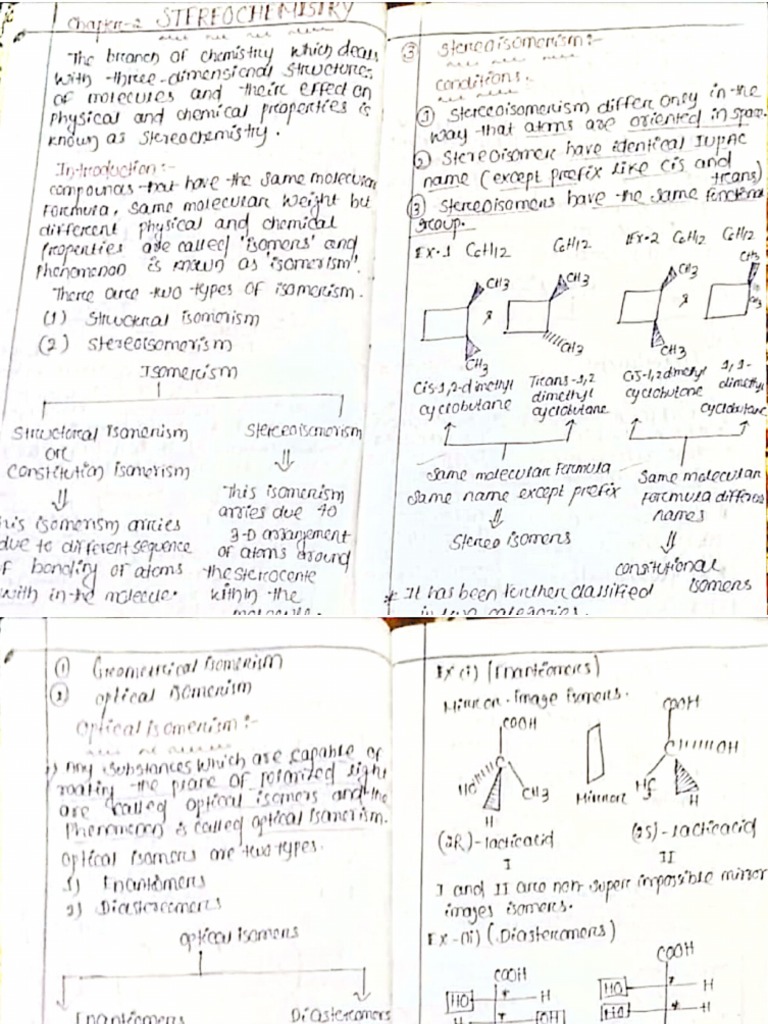 Chapter-2 STEREOCHEMISTRY
The branch of chemistry which deals
with three-dimensional structure
of molecules and their effect on
physical and chemical properties is
known as stereochemistry.
Introduction:-
compounds that have the same molecular
formula, same molecular weight but
different physical and chemical
properties are called 'isomers' and
phenomenon is known as 'isomerism'.
There are two types of isomerism.
(1) Structural isomerism
(2) stereoisomerism
Isomerism
Structural isomerism
or
constitution isomerism
⇓
This isomerism arries
due to different sequence
of bonding of atoms
with in the molecule.
stereoisomerism
⇓
This isomerism
arries due to
3-D arrangement
of atoms around
the sterocente
within the
molecule.
③ stereoisomerism:-
conditions.
① stereoisomerism differ only in the
way that atoms are oriented in space.
② stereoisomer have identical IUPAC
name (except prefix like cis and
trans)
③ stereoisomers have the same functional
group.
Ex.1 C6H12 C6H12 Ex.2 C6H12 C6H12
CH3 CH3 CH3 CH3
& &
CH3 CH3 CH3 CH3
Cis-1,2-dimethyl
cyclobutane
Trans-1,2
dimethyl
cyclobutane
Cis-1,2dimethyl
cyclobutane
1,1-
dimethyl
cyclobutane
same molecular formula
same name except prefix
⇓
stereo isomers
same molecular
formula different
names
⇓
consitutional
isomers
* It has been further classified
in two categories.
① Geometrical isomerism
② optical isomerism
Optical isomerism:-
1) Any substances which are capable of
roating the plane of polarized light
are called optical isomers and the
phenomenon is called optical isomerism.
optical isomers are two types.
1) Enantiomers
2) Diastereomers
optical isomers
Enantiomers Diastereomers
Ex (i) (Enantiomers)
Mirror-image isomers.
COOH COOH
C C OH
HO CH3 Mirror H3C H
H
(2R)-lacticacid (2S)-lacticacid
I II
I and II are non super impossible mirror
images isomers.
Ex-(ii) (Diastereomers)
COOH COOH
HO * H HO * H
H OH HO H